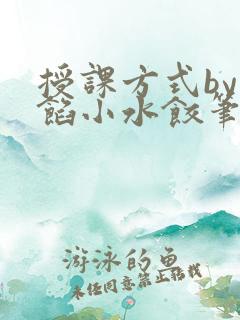 授課方式by
餡小水餃筆
游泳的魚
未经同意禁止转载